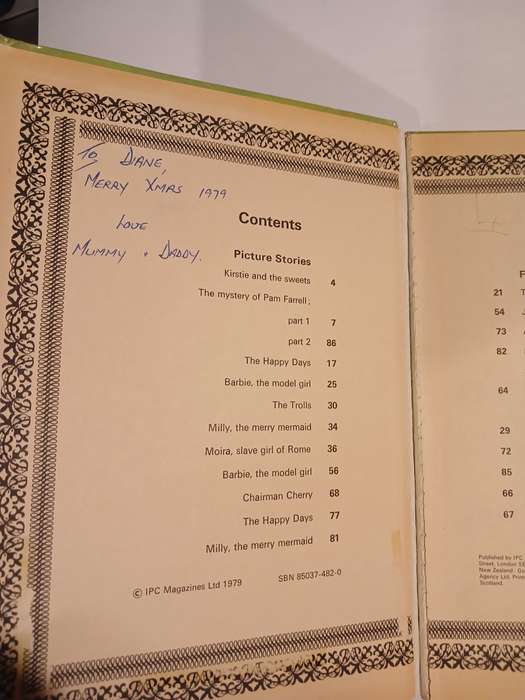 To DIANE,
MERRY XMAS 1979
LOVE
MUMMY + DADDY.
Contents
Picture Stories
Kirstie and the sweets 4
The mystery of Pam Farrell;
part 1 7
part 2 86
The Happy Days 17
Barbie, the model girl 25
The Trolls 30
Milly, the merry mermaid 34
Moira, slave girl of Rome 36
Barbie, the model girl 56
Chairman Cherry 68
The Happy Days 77
Milly, the merry mermaid 81
© IPC Magazines Ltd 1979 SBN 85037-482-0
21
54
73
82
64
29
72
85
66
67
Published by IPC
Street, London SE
New Zealand
Agency Ltd.
Scotland.